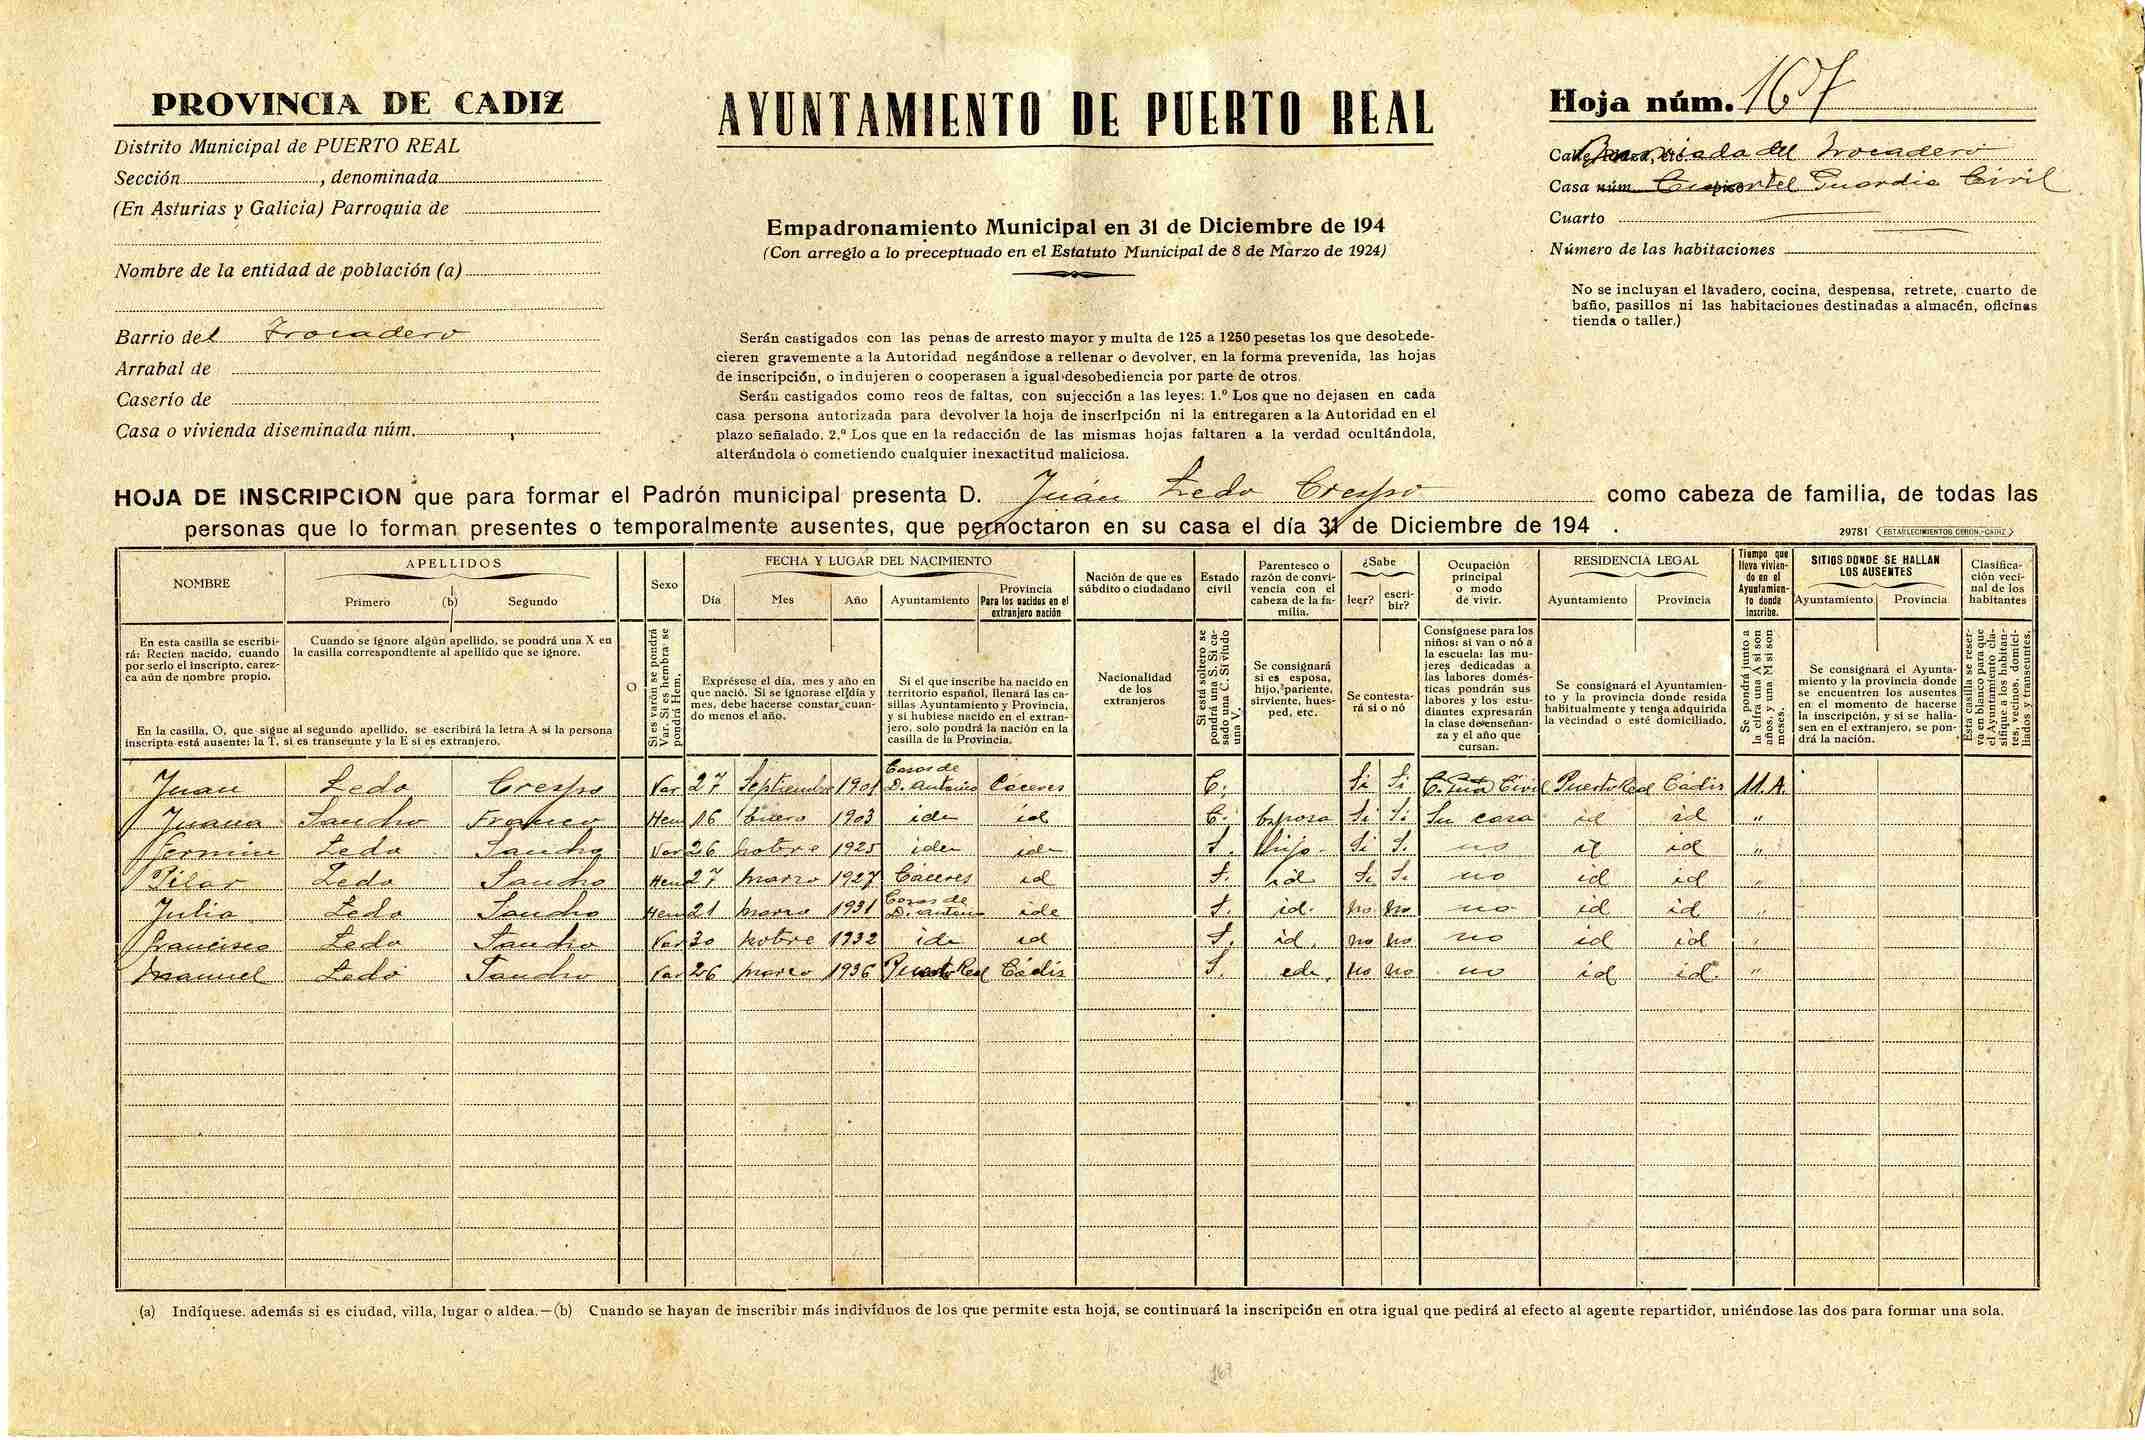 PROVINCIA DE CADIZ
Distrito Municipal de PUERTO REAL
Sección, denominada
(En Asturias y Galicia) Parroquia de
Nombre de la entidad de población (a)
Barrio del Trocadero
Arrabal de
Caserío de
Casa o vivienda diseminada núm.
AYUNTAMIENTO DE PUERTO REAL
Empadronamiento Municipal en 31 de Diciembre de 194
(Con arreglo a lo preceptuado en el Estatuto Municipal de 8 de Marzo de 1924)
Serán castigados con las penas de arresto mayor y multa de 125 a 1250 pesetas los que desobede-
cieren gravemente a la Autoridad negándose a rellenar o devolver, en la forma prevenida, las hojas
de inscripción, o indujeren o cooperasen a igual desobediencia por parte de otros.
Serán castigados como reos de faltas, con sujección a las leyes: 1.º Los que no dejasen en cada
casa persona autorizada para devolver la hoja de inscripción ni la entregaren a la Autoridad en el
plazo señalado. 2.º Los que en la redacción de las mismas hojas faltaren a la verdad ocultándola,
alterándola o cometiendo cualquier inexactitud maliciosa.
Hoja núm. 167
Calle, Plaza, etc. Barriada del Trocadero
Casa núm. piso Cuartel Guardia Civil
Cuarto
Número de las habitaciones
No se incluyan el lavadero, cocina, despensa, retrete, cuarto de
baño, pasillos ni las habitaciones destinadas a almacén, oficinas
tienda o taller.)
HOJA DE INSCRIPCION que para formar el Padrón municipal presenta D. Juán Ledo Crespo como cabeza de familia, de todas las
personas que lo forman presentes o temporalmente ausentes, que pernoctaron en su casa el día 31 de Diciembre de 194 .
29781 ESTABLECIMIENTOS CERON.-CADIZ
NOMBRE
APELLIDOS
Primero (b) Segundo
Sexo
FECHA Y LUGAR DEL NACIMIENTO
Día Mes Año Ayuntamiento
Provincia
Para los nacidos en el
extranjero nación
Nación de que es
súbdito o ciudadano
Estado
civil
Parentesco o
razón de convi-
vencia con el
cabeza de la fa-
milia.
¿Sabe
leer? escri-
bir?
Ocupación
principal
o modo
de vivir.
RESIDENCIA LEGAL
Ayuntamiento Provincia
Tiempo que
lleva vivien-
do en el
Ayuntamien-
to donde
inscribe.
SITIOS DONDE SE HALLAN
LOS AUSENTES
Ayuntamiento Provincia
Clasifica-
ción veci-
nal de los
habitantes
En esta casilla se escribi-
rá: Recien nacido, cuando
por serlo el inscripto, carez-
ca aún de nombre propio.
Cuando se ignore algún apellido, se pondrá una X en
la casilla correspondiente al apellido que se ignore.
En la casilla, O, que sigue al segundo apellido, se escribirá la letra A si la persona
inscripta está ausente; la T, si es transeunte y la E si es extranjero.
O
Si es varón se pondrá
Var. Si es hembra se
pondrá Hem.
Exprésese el día, mes y año en
que nació. Si se ignorase el día y
mes, debe hacerse constar cuan-
do menos el año.
Si el que inscribe ha nacido en
territorio español, llenará las ca-
sillas Ayuntamiento y Provincia,
y si hubiese nacido en el extran-
jero, solo pondrá la nación en la
casilla de la Provincia.
Nacionalidad
de los
extranjeros
Si está soltero se
pondrá una S. Si ca-
sado una C. Si viudo
una V.
Se consignará
si es esposa,
hijo, pariente,
sirviente, hues-
ped, etc.
Se contesta-
rá si o nó
Consígnese para los
niños: si van o nó a
la escuela: las mu-
jeres dedicadas a
las labores domés-
ticas pondrán sus
labores y los estu-
diantes expresarán
la clase de enseñan-
za y el año que
cursan.
Se consignará el Ayuntamien-
to y la provincia donde resida
habitualmente y tenga adquirida
la vecindad o esté domiciliado.
Se pondrá junto a
la cifra una A si son
años, y una M si son
meses.
Se consignará el Ayunta-
miento y la provincia donde
se encuentren los ausentes
en el momento de hacerse
la inscripción, y si se halla-
sen en el extranjero, se pon-
drá la nación.
Esta casilla se reser-
va en blanco para que
el Ayuntamiento cla-
sifique a los habitan-
tes, vecinos, domici-
liados y transeuntes.
Juan Ledo Crespo Var 27 Septiembre 1901 Casas de D. Antonio Cáceres C. Si Si C. Gua Civil Puerto Real Cádiz 11.A.
Juana Sancho Franco Hem 16 Enero 1903 ide id C. Esposa Si Si Su casa id id "
Fermin Ledo Sancho Var 26 1925 ide ide S. hijo Si S. no id id "
Pilar Ledo Sancho Hem 27 marzo 1927 Cáceres id S. id Si S. no id id "
Julia Ledo Sancho Hem 21 marzo 1931 Casas de D. Antonio ide S. id. no no no id id "
Francisco Ledo Sancho Var 30 1932 ide id S. id. no no no id id "
Manuel Ledo Sancho Var 26 marzo 1936 Puerto Real Cádiz S. ide. no no no id id. "
(a) Indíquese. además si es ciudad, villa, lugar o aldea.—(b) Cuando se hayan de inscribir más indivíduos de los que permite esta hoja, se continuará la inscripción en otra igual que pedirá al efecto al agente repartidor, uniéndose las dos para formar una sola.
167